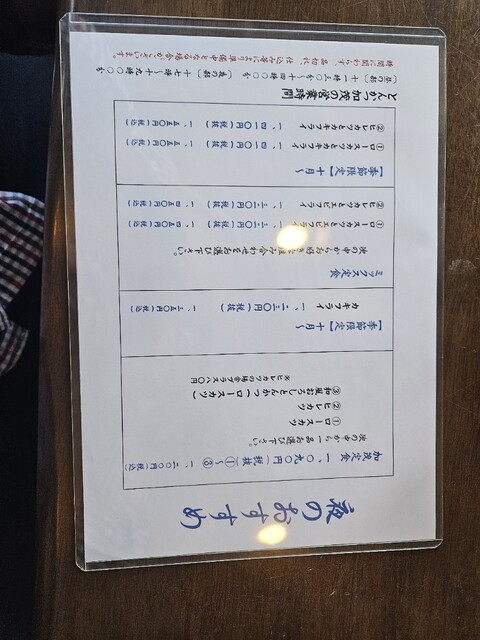 夜のおすすめ
加茂定食 一、〇九〇円(税抜) ①〜③ 一、二〇〇円(税込)
次の中から一品お選び下さい。
① ロースカツ
② ヒレカツ
③ 和風おろしとんかつ(ロースカツ)
※ヒレカツの場合プラス八〇円
【季節限定】十月〜
カキフライ 一、二三〇円(税抜) 一、三五〇円(税込)
ミックス定食
次の中からお好きな組み合わせをお選び下さい。
① ロースカツとエビフライ
② ヒレカツとエビフライ
【季節限定】十月〜
① ロースカツとカキフライ 一、四一〇円(税抜) 一、五五〇円(税込)
② ヒレカツとカキフライ 一、四一〇円(税抜) 一、五五〇円(税込)
とんかつ加茂の営業時間
〔昼の部〕十一時三〇分〜十四時〇〇分
〔夜の部〕十七時〇〇分〜十九時〇〇分
時間に関わらず、品切れ、仕込み等により準備中となる場合がございます。